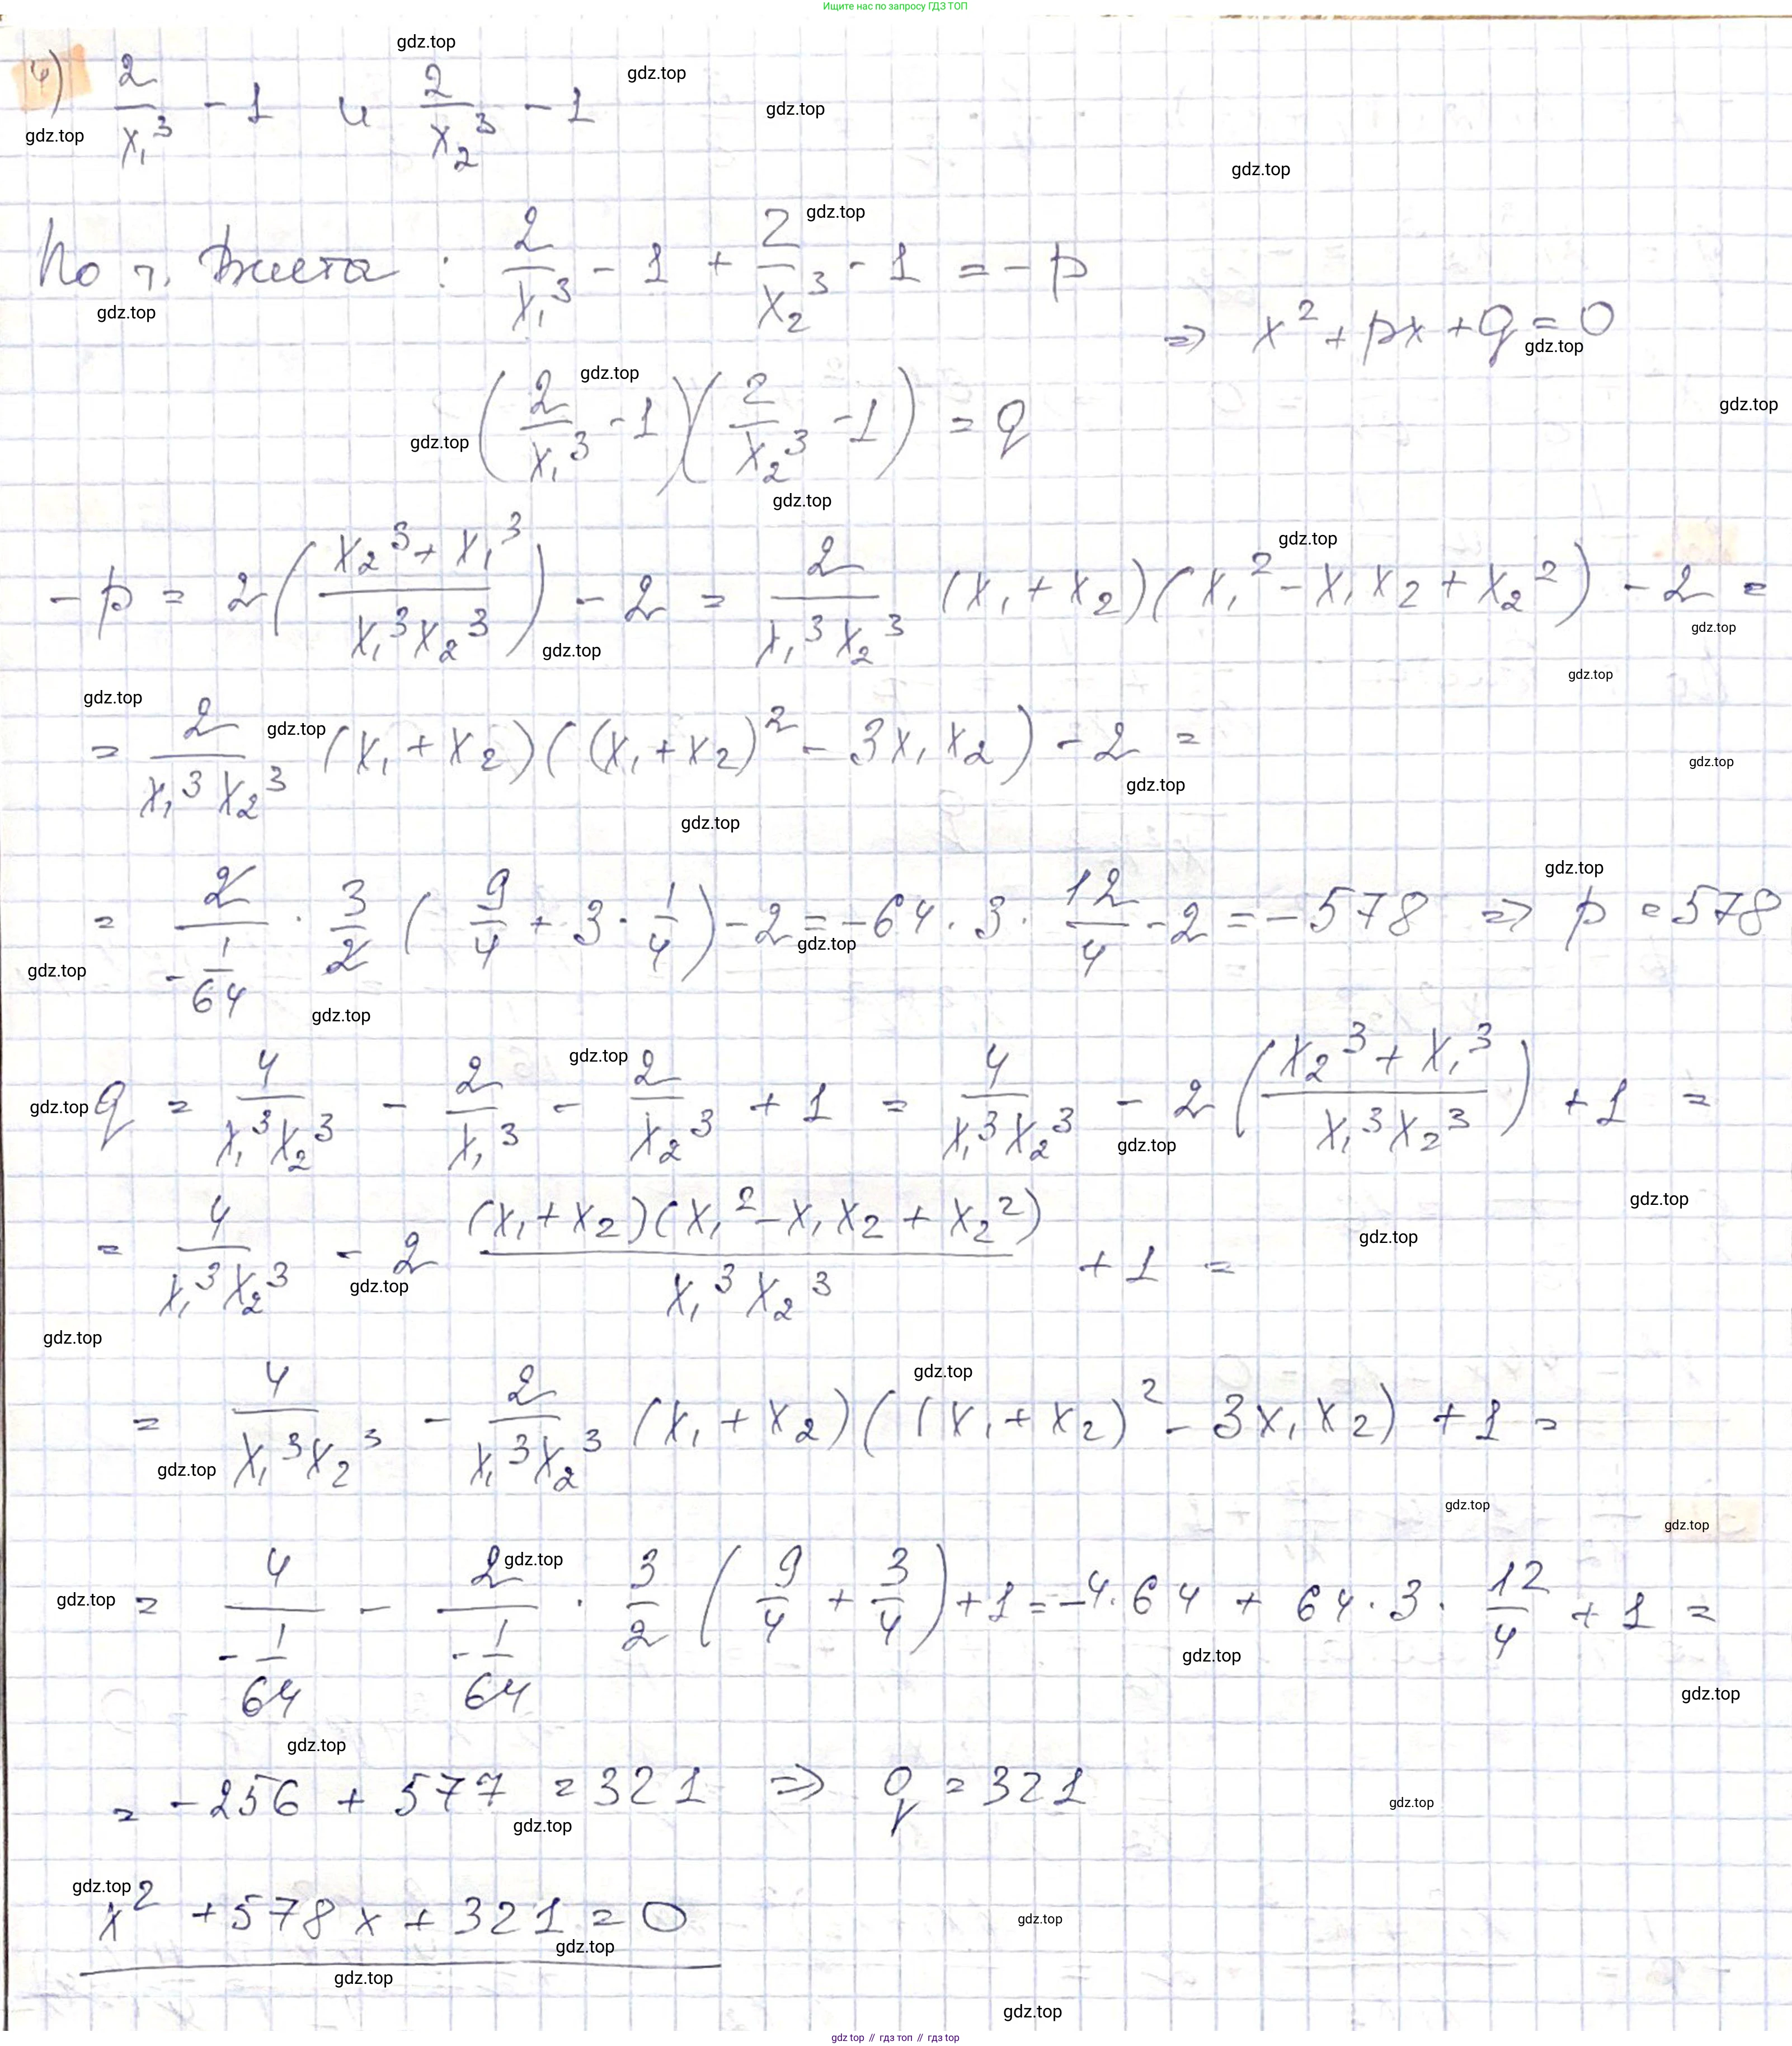 Ищите нас по запросу ГДЗ ТОП
4) 2/x₁³ - 1 и 2/x₂³ - 1
По т. Виета : 2/x₁³ - 1 + 2/x₂³ - 1 = - p
⇒ x² + px + q = 0
(2/x₁³ - 1)(2/x₂³ - 1) = q
- p = 2((x₂³ + x₁³)/(x₁³x₂³)) - 2 = 2/(x₁³x₂³) (x₁ + x₂)(x₁² - x₁x₂ + x₂²) - 2 =
= 2/(x₁³x₂³) (x₁ + x₂)((x₁ + x₂)² - 3x₁x₂) - 2 =
= 2/(-1/64) · 3/2 (9/4 + 3 · 1/4) - 2 = -64 · 3 · 12/4 - 2 = - 578 ⇒ p = 578
q = 4/(x₁³x₂³) - 2/x₁³ - 2/x₂³ + 1 = 4/(x₁³x₂³) - 2((x₂³ + x₁³)/(x₁³x₂³)) + 1 =
= 4/(x₁³x₂³) - 2 (x₁ + x₂)(x₁² - x₁x₂ + x₂²)/(x₁³x₂³) + 1 =
= 4/(x₁³x₂³) - 2/(x₁³x₂³) (x₁ + x₂)((x₁ + x₂)² - 3x₁x₂) + 1 =
= 4/(-1/64) - 2/(-1/64) · 3/2 (9/4 + 3/4) + 1 = -4 · 64 + 64 · 3 · 12/4 + 1 =
= -256 + 577 = 321 ⇒ q = 321
x² + 578x + 321 = 0
gdz.top
gdz top // гдз топ // гдз top